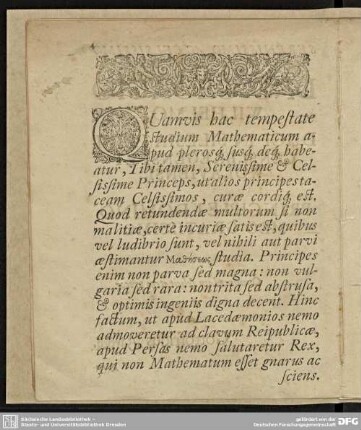 QUamvis hac tempestate
studium Mathematicum a-
pud plerosq́; susq́; deq́; habe-
atur, Tibi tamen, Serenissime & Cel-
sissime Princeps, ut alios principes ta-
ceam Celsissimos, curæ cordiq́; est.
Quod retundendæ multorum si non
malitiæ, certè incuriæ satis est, quibus
vel ludibrio sunt, vel nihili aut parvi
æstimantur Μαθήσεως studia. Principes
enim non parva sed magna: non vul-
garia sed rara: non trita sed abstrusa,
& optimis ingeniis digna decent. Hinc
factum, ut apud Lacedæmonios nemo
admoveretur ad clavum Reipublicæ,
apud Persas nemo salutaretur Rex,
qui non Mathematum esset gnarus ac
sciens.
Sächsische Landesbibliothek -
Staats- und Universitätsbibliothek Dresden
gefördert von der
Deutschen Forschungsgemeinschaft
DFG